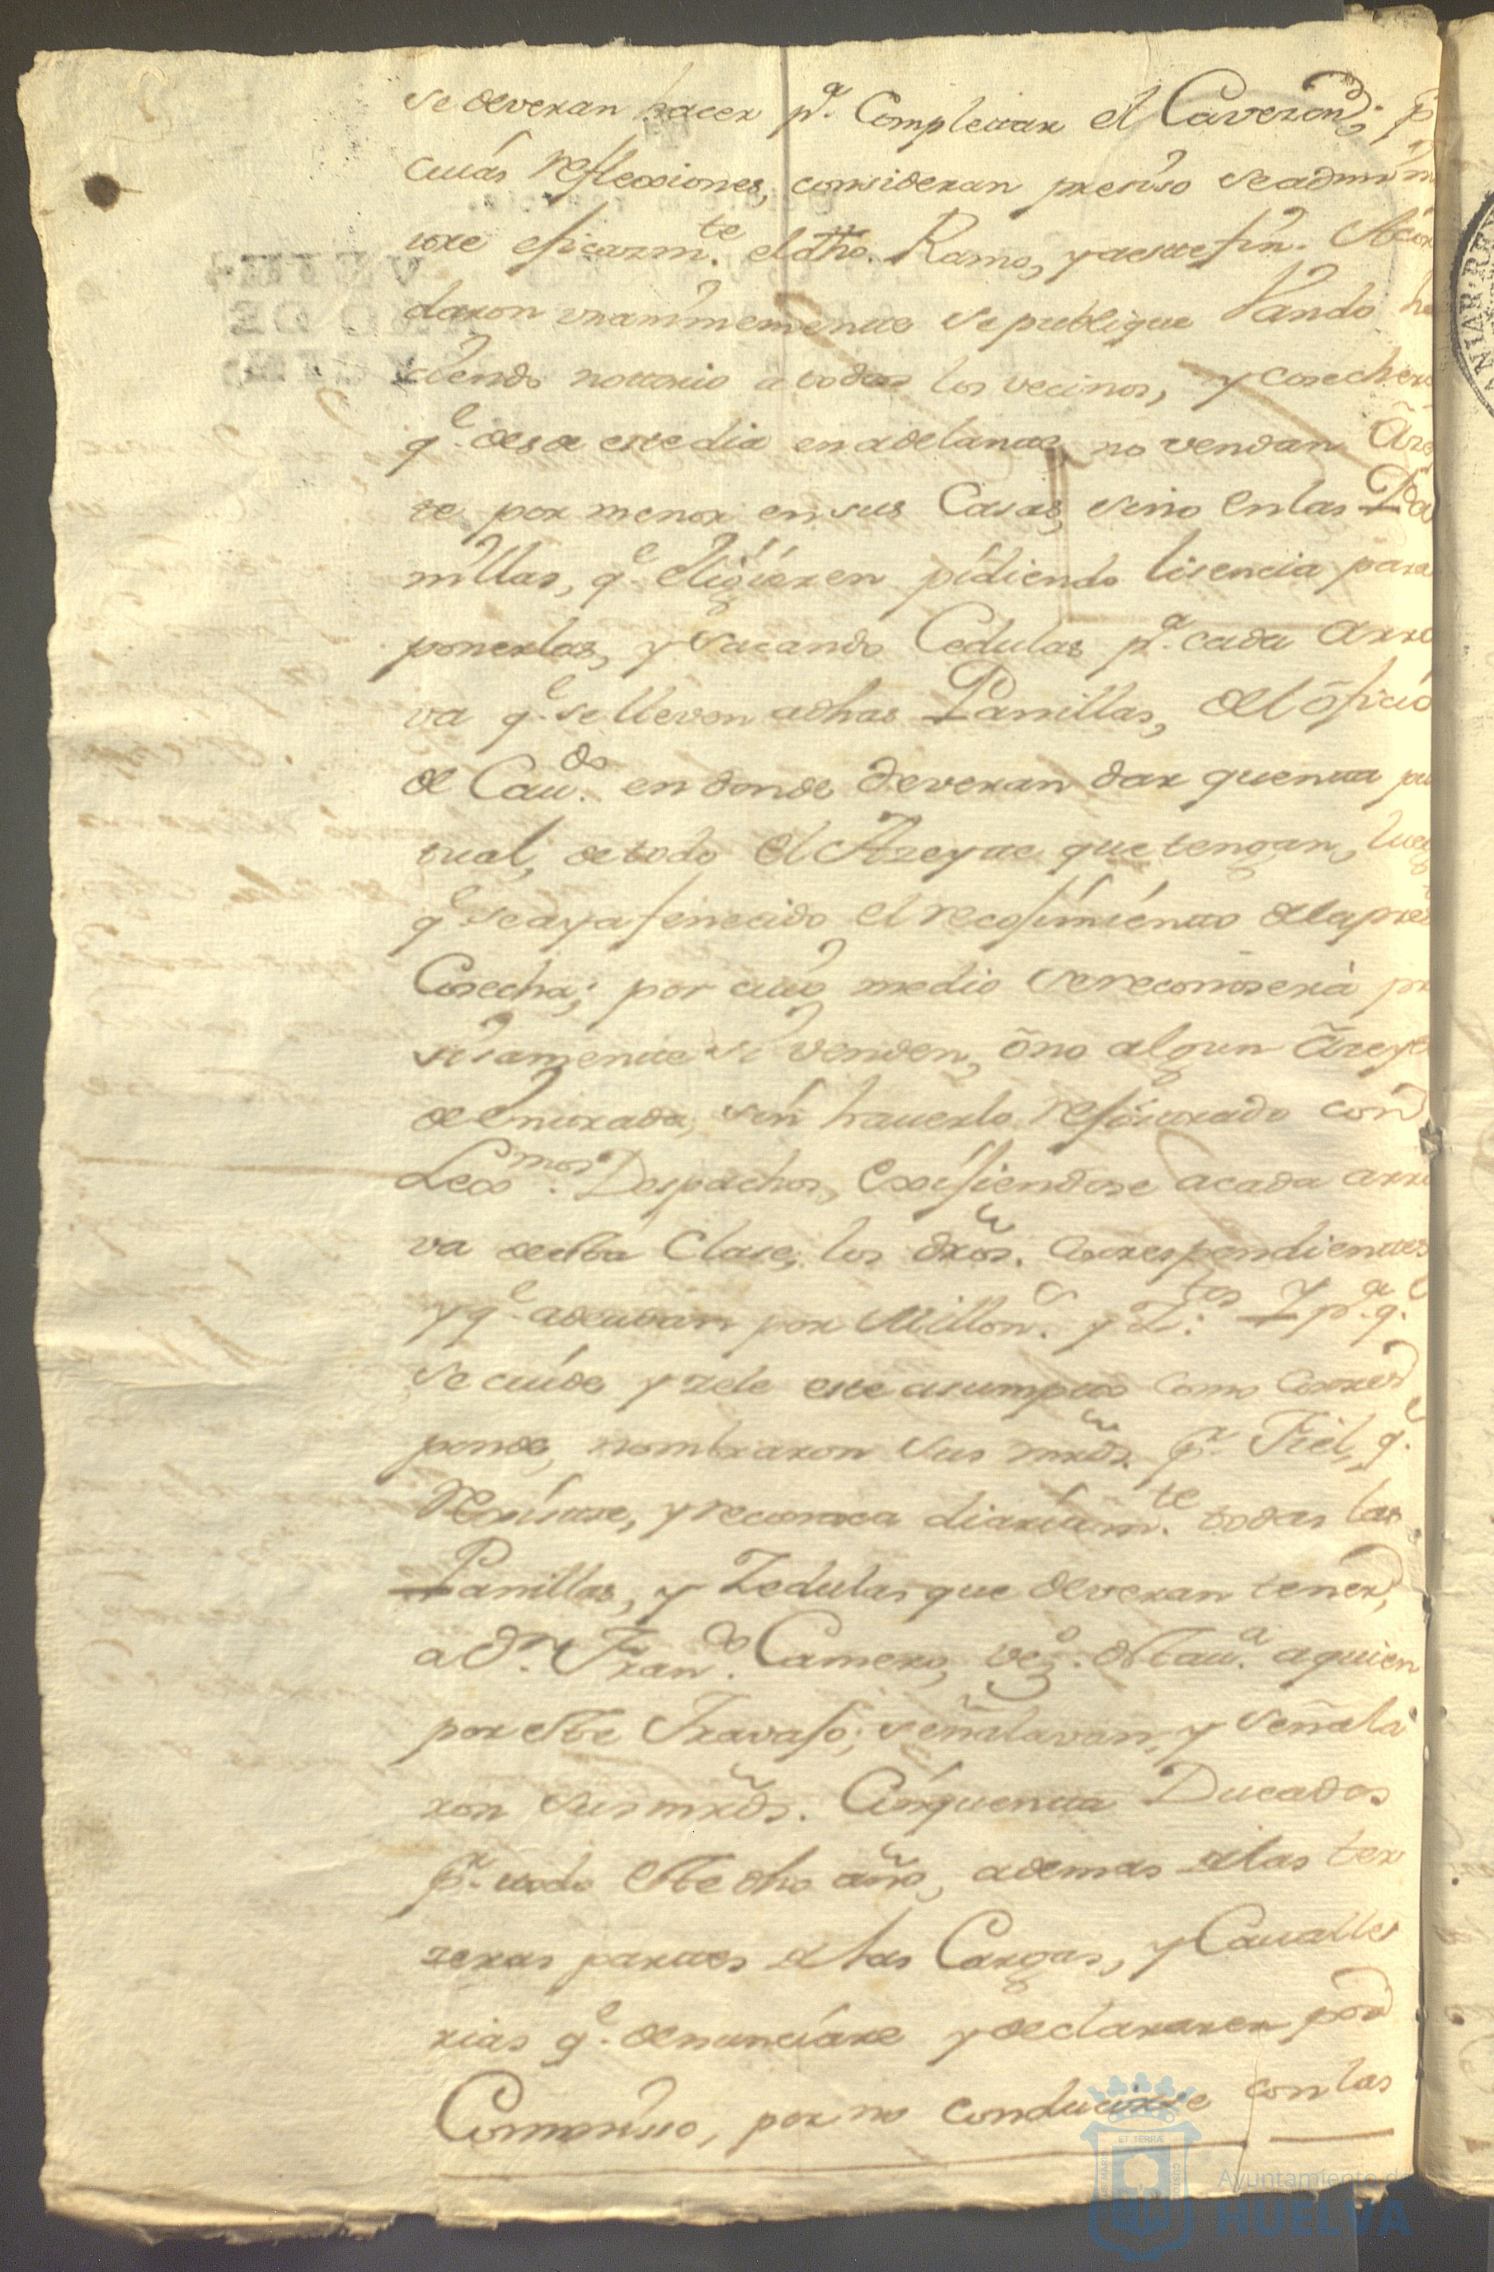 se deveran hacer pª. Completar el Cavezon; p
cuias reflecciones, consideran presiso se admin
tre eficazmte. el dho. Ramo, y a este fin. Acor
daron unanimemente se publique Vando ha
ciendo nottorio a todos los vecinos, y cosechero
qe. desde este dia en adelante, no vendan Azey
te por menor en sus Casas, sino en las Pa
nillas, qe. eligiéren pidiendo lisencia para
ponerlas, y sacando Cedulas pª. cada arro
va qe. se lleven a dhas Panillas, del oficio
de Cavdo. en donde deveran dar quenta pu
tual, de todo el Azeyte que tengan, lueg
qe. se aya fenecido el recofimiento de la presᵗᵉ
Cosecha; por cuio medio se reconoserà pr
sisamente si venden, ò no algun Azeyte
de Entrada, sin haverlo refistrado con
Lexmos. Despachos, Exsifiendose a cada arro
va de esta Clase, los dros. Correspondientes
y qe. adeudan por Millons. y Ztos. Y pª. qe.
se cuide y zele este asumpto como Corres
ponde, nombraron sus mrds. pr. Fiel, qe.
Rexistre, y reconosca diariamte. todas las
Panillas, y Zedulas que deveran tener,
a Dn. Franco. Camero, vezº. de Stª. a quien
por este Travafo; señalavan, y señala
ron sus mrds. Cinquenta Ducados
pr. todo este dho año, ademas de las ter
zeras partes de las Cargas, y Cavalle
rias qe. denunciáre y declararen por
Commisso, por no conducirse con las
Ayuntamiento de
HUELVA